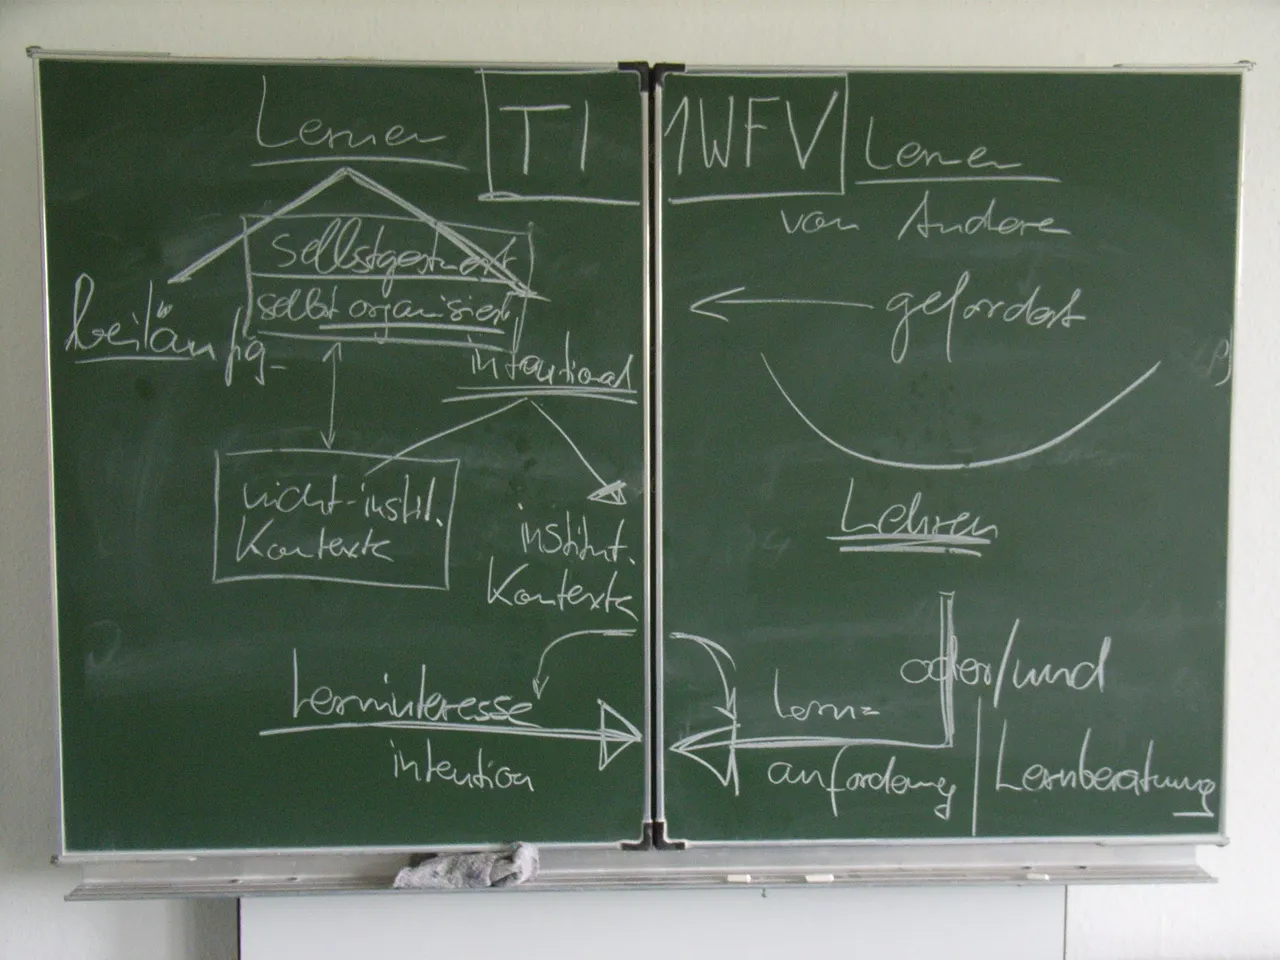 Lernen
T1
1WFV
Lernen
von Andere
selbstgesteuert
selbstorganisiert
beiläufig
intentional
gefordert
nicht-instit.
Kontexte
institut.
Kontexte
Lehren
Lerninteresse
intention
oder/und
Lern=
anforderung
Lernberatung